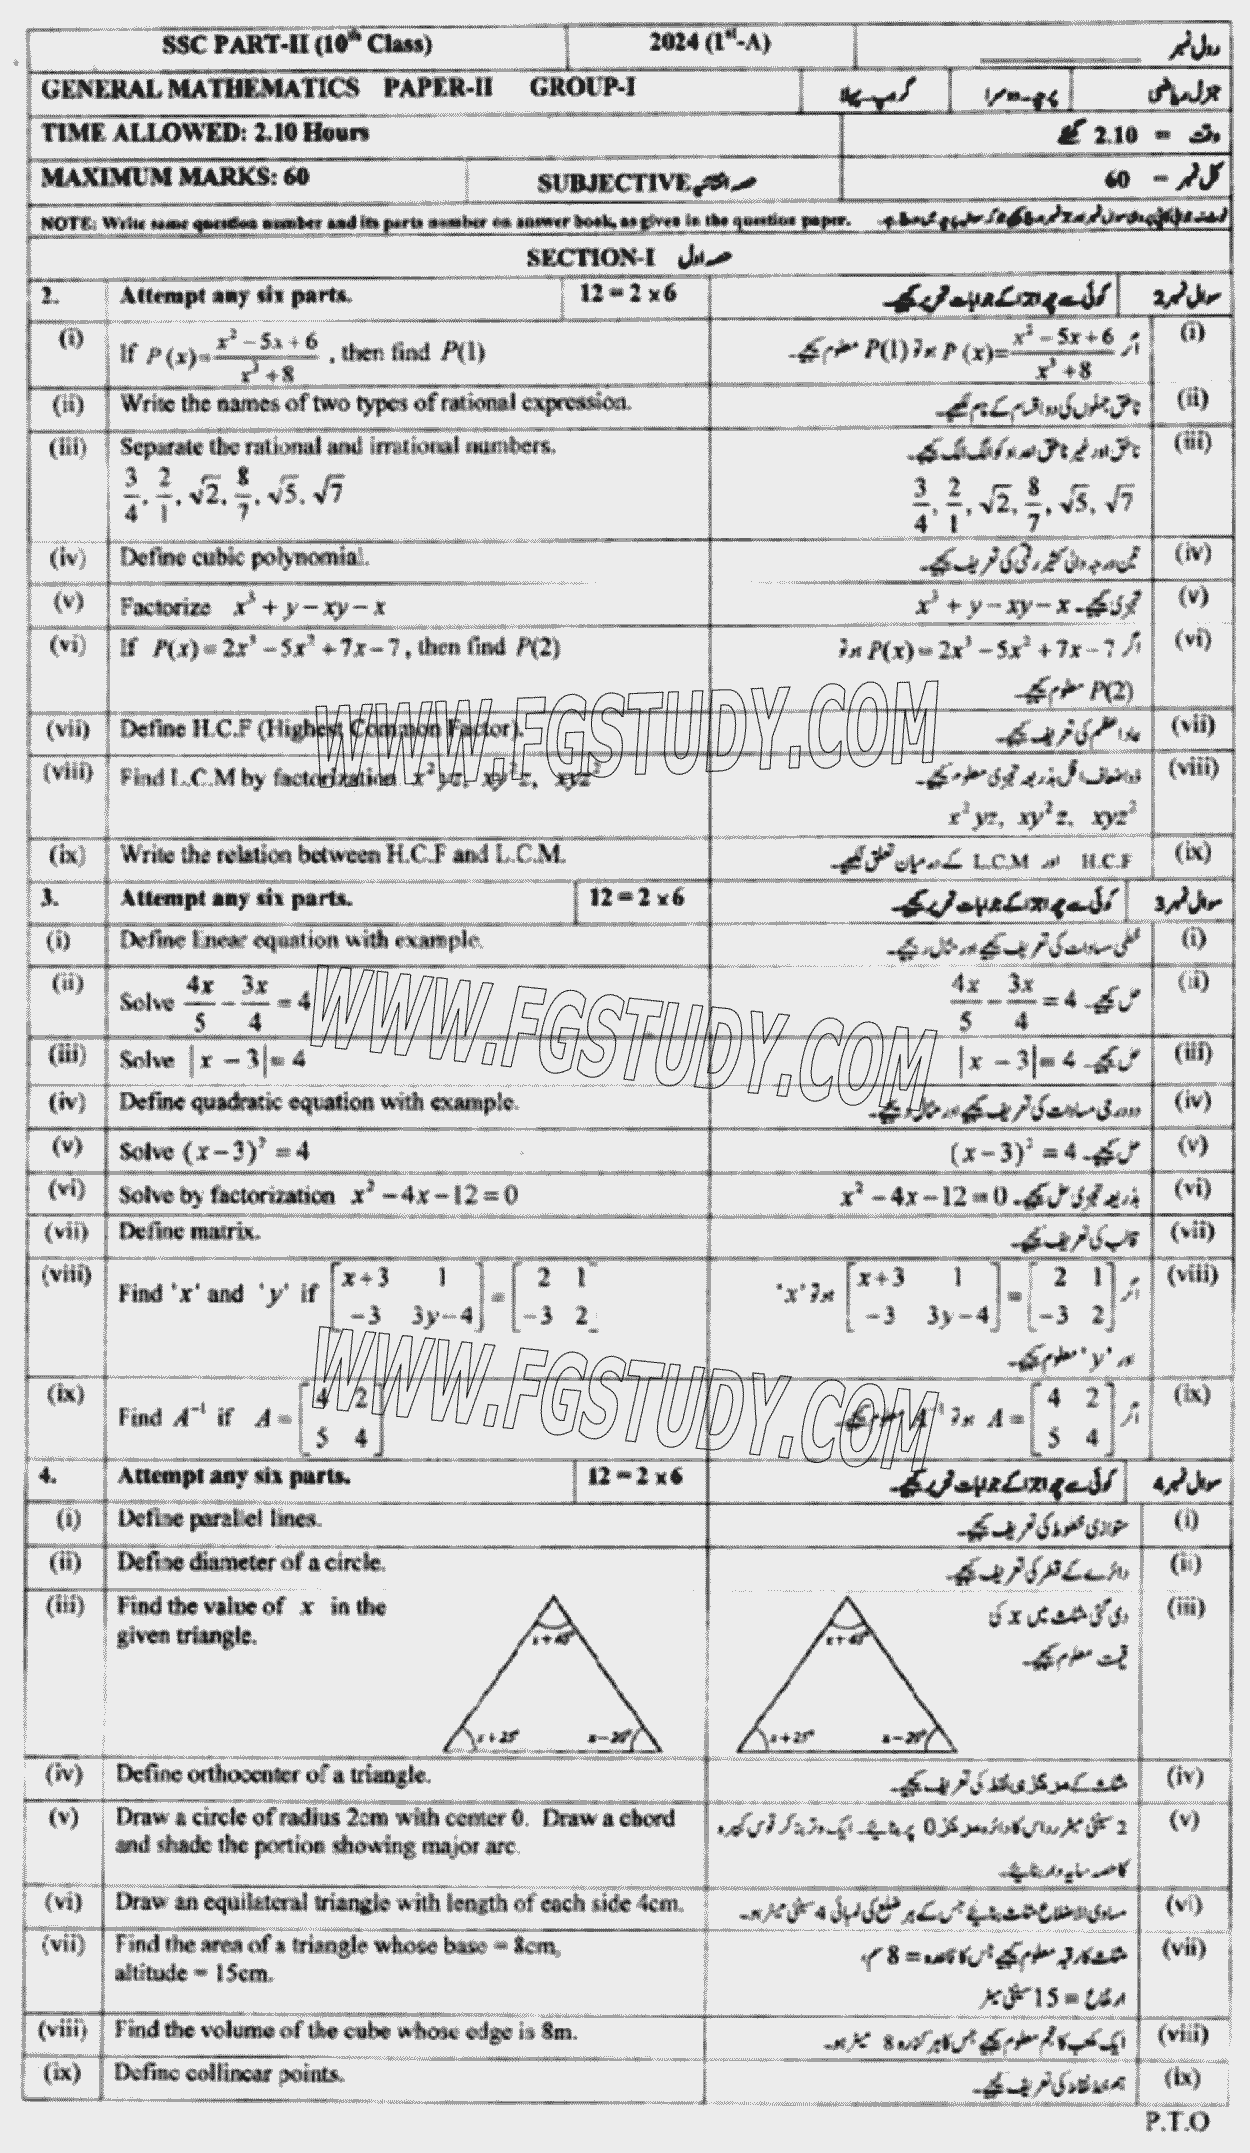 SSC PART-II (10th Class) 2024 (1st-A) رول نمبر
GENERAL MATHEMATICS PAPER-II GROUP-I گروپ پہلا پرچہ دوسرا جنرل ریاضی
TIME ALLOWED: 2.10 Hours وقت = 2.10 گھنٹے
MAXIMUM MARKS: 60 SUBJECTIVE حصہ انشائیہ کل نمبر = 60
NOTE: Write same question number and its parts number on answer book, as given in the question paper.
SECTION-I حصہ اول
2. Attempt any six parts. 12 = 2 x 6 کوئی سے چھ اجزا کے جوابات تحریر کیجئے۔ سوال نمبر 2
(i) If P(x) = (x² − 5x + 6)/(x³ + 8), then find P(1) اگر P(x) = (x² − 5x + 6)/(x³ + 8) ہو تو P(1) معلوم کیجئے۔ (i)
(ii) Write the names of two types of rational expression. ناطق جملوں کی دو اقسام کے نام لکھیے۔ (ii)
(iii) Separate the rational and irrational numbers. ناطق اور غیر ناطق اعداد کو الگ الگ کیجئے۔ (iii)
3/4, 2/1, √2, 8/7, √5, √7 3/4, 2/1, √2, 8/7, √5, √7
(iv) Define cubic polynomial. تین درجہ والی کثیر رقمی کی تعریف کیجئے۔ (iv)
(v) Factorize x³ + y − xy − x تجزی کیجئے۔ x³ + y − xy − x (v)
(vi) If P(x) = 2x³ − 5x² + 7x − 7, then find P(2) اگر P(x) = 2x³ − 5x² + 7x − 7 ہو تو (vi)
P(2) معلوم کیجئے۔
(vii) Define H.C.F (Highest Common Factor). عاد اعظم کی تعریف کیجئے۔ (vii)
(viii) Find L.C.M by factorization x²yz, xy²z, xyz² ذواضعاف اقل بذریعہ تجزی معلوم کیجئے۔ (viii)
x²yz, xy²z, xyz²
(ix) Write the relation between H.C.F and L.C.M. H.C.F اور L.C.M کے درمیان تعلق لکھیے۔ (ix)
3. Attempt any six parts. 12 = 2 x 6 کوئی سے چھ اجزا کے جوابات تحریر کیجئے۔ سوال نمبر 3
(i) Define linear equation with example. خطی مساوات کی تعریف کیجئے اور مثال دیجئے۔ (i)
(ii) Solve 4x/5 − 3x/4 = 4 حل کیجئے۔ 4x/5 − 3x/4 = 4 (ii)
(iii) Solve |x − 3| = 4 حل کیجئے۔ |x − 3| = 4 (iii)
(iv) Define quadratic equation with example. دو درجی مساوات کی تعریف کیجئے اور مثال دیجئے۔ (iv)
(v) Solve (x − 3)² = 4 حل کیجئے۔ (x − 3)² = 4 (v)
(vi) Solve by factorization x² − 4x − 12 = 0 بذریعہ تجزی حل کیجئے۔ x² − 4x − 12 = 0 (vi)
(vii) Define matrix. قالب کی تعریف کیجئے۔ (vii)
(viii) Find 'x' and 'y' if [x+3 1; −3 3y−4] = [2 1; −3 2] اگر [x+3 1; −3 3y−4] = [2 1; −3 2] ہو تو 'x' (viii)
اور 'y' معلوم کیجئے۔
(ix) Find A⁻¹ if A = [4 2; 5 4] اگر A = [4 2; 5 4] ہو تو A⁻¹ معلوم کیجئے۔ (ix)
4. Attempt any six parts. 12 = 2 x 6 کوئی سے چھ اجزا کے جوابات تحریر کیجئے۔ سوال نمبر 4
(i) Define parallel lines. متوازی خطوط کی تعریف کیجئے۔ (i)
(ii) Define diameter of a circle. دائرے کے قطر کی تعریف کیجئے۔ (ii)
(iii) Find the value of x in the دی گئی مثلث میں x کی (iii)
given triangle. قیمت معلوم کیجئے۔
x + 25° x − 20° x + 25° x − 20°
(iv) Define orthocenter of a triangle. (iv)
(v) Draw a circle of radius 2cm with center 0. Draw a chord 2 سینٹی میٹر رداس کا دائرہ مرکز 0 پر بنائیے۔ ایک وتر بنا کر قوس کبیرہ (v)
and shade the portion showing major arc. کا حصہ سایہ دار بنائیے۔
(vi) Draw an equilateral triangle with length of each side 4cm. مساوی الاضلاع مثلث بنائیے جس کے ہر ضلع کی لمبائی 4 سینٹی میٹر ہو۔ (vi)
(vii) Find the area of a triangle whose base = 8cm, مثلث کا رقبہ معلوم کیجئے جس کا قاعدہ = 8 سم، (vii)
altitude = 15cm. ارتفاع = 15 سینٹی میٹر
(viii) Find the volume of the cube whose edge is 8m. ایک مکعب کا حجم معلوم کیجئے جس کا ہر کنارہ 8 میٹر ہو۔ (viii)
(ix) Define collinear points. ہم خط نقاط کی تعریف کیجئے۔ (ix)
P.T.O
WWW.FGSTUDY.COM
WWW.FGSTUDY.COM
WWW.FGSTUDY.COM